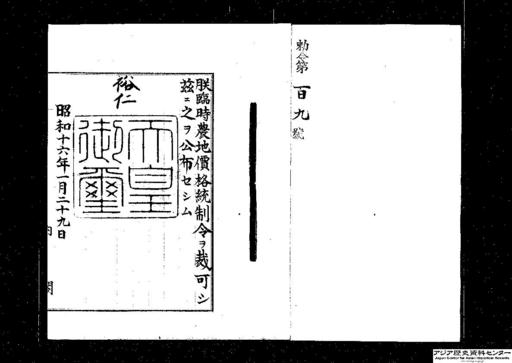 勅令第百九號
朕臨時農地價格統制令ヲ裁可シ
玆ニ之ヲ公布セシム
裕仁
天皇御璽
昭和十六年一月二十九日
内閣
アジア歴史資料センター
Japan Center for Asian Historical Records